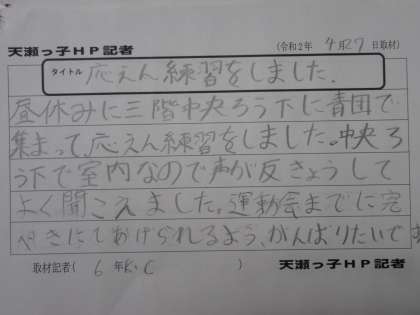 天瀬っ子HP記者
(令和2年 4月27日取材)
タイトル 応えん練習をしました.
昼休みに三階中央ろう下に青団で
集まって、応えん練習をしました。中央ろ
う下で室内なので声が反きょうして
よく聞こえました。運動会までに完
ぺきにしあげられるよう、がんばりたいです
取材記者( 6 年K.C )
天瀬っ子HP記者